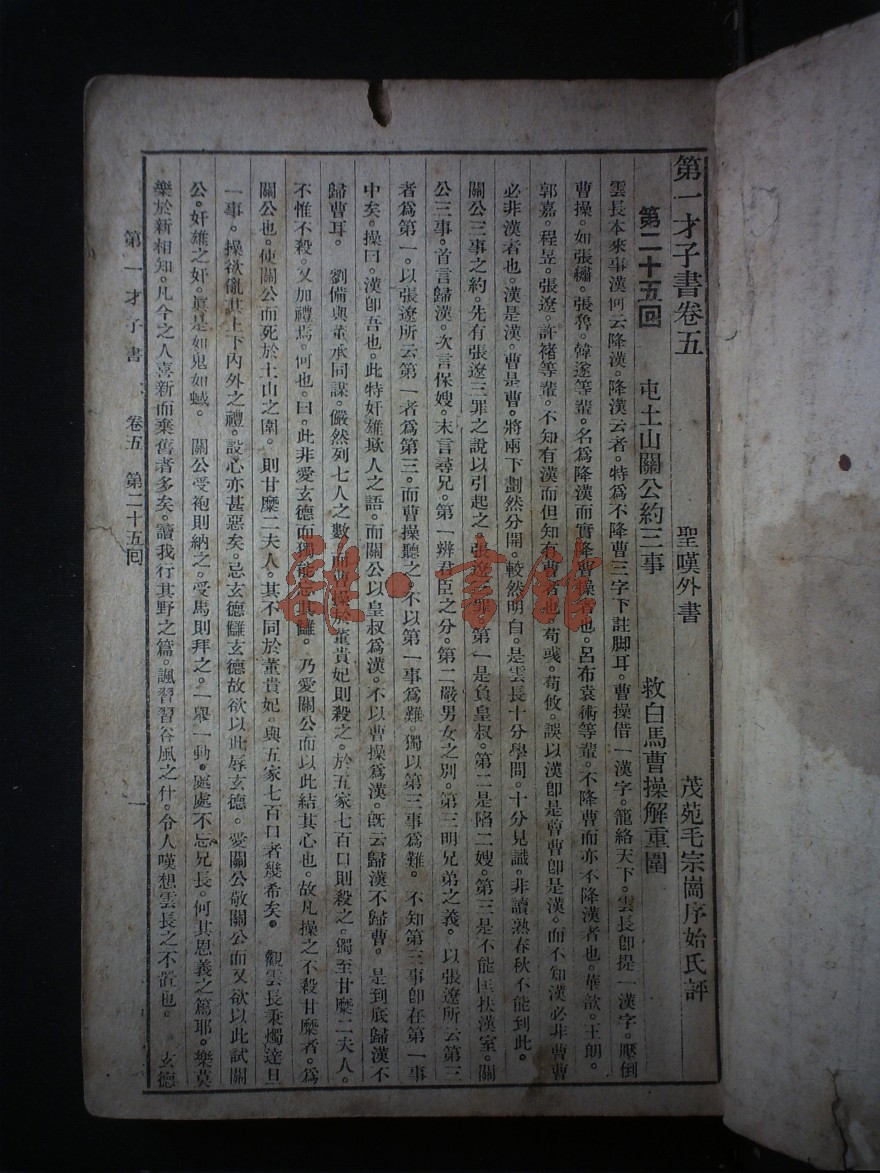 第一才子書卷五 聖嘆外書 茂苑毛宗崗序始氏評
第二十五回 屯土山關公約三事 救白馬曹操解重圍
雲長本來事漢何云降漢。降漢云者。特爲不降曹三字下註脚耳。曹操借一漢字。籠絡天下。雲長卽提一漢字。壓倒
曹操。如張繡。張魯。韓遂等輩。名爲降漢而實降曹操者也。呂布袁術等輩。不降曹而亦不降漢者也。華歆。王朗。
郭嘉。程昱。張遼。許褚等輩。不知有漢而但知有曹者也。荀彧。荀攸。誤以漢卽是曹曹卽是漢。而不知漢必非曹曹
必非漢者也。漢是漢。曹是曹。將兩下劃然分開。較然明白。是雲長十分學問。十分見識。非讀熟春秋不能到此。
關公三事之約。先有張遼三罪之說以引起之。張遼三罪。第一是負皇叔。第二是陷二嫂。第三是不能匡扶漢室。關
公三事。首言歸漢。次言保嫂。末言尋兄。第一辨君臣之分。第二嚴男女之別。第三明兄弟之義。以張遼所云第三
者爲第一。以張遼所云第一者爲第三。而曹操聽之。不以第一事爲難。獨以第三事爲難。不知第三事卽在第一事
中矣。操曰。漢卽吾也。此特奸雄欺人之語。而關公以皇叔爲漢。不以曹操爲漢。旣云歸漢不歸曹。是到底歸漢不
歸曹耳。 劉備與董承同謀。儼然列七人之數。而曹操於董貴妃則殺之。於五家七百口則殺之。獨至甘糜二夫人。
不惟不殺。又加禮焉。何也。曰。此非愛玄德而獨能忘其讎。乃愛關公而以此結其心也。故凡操之不殺甘糜者。爲
關公也。使關公而死於土山之圍。則甘糜二夫人。其不同於董貴妃。與五家七百口者幾希矣。 觀雲長秉燭達旦
一事。操欲亂其上下內外之禮。設心亦甚惡矣。忌玄德讎玄德故欲以此辱玄德。愛關公敬關公而又欲以此試關
公。奸雄之奸。眞是如鬼如蜮。 關公受袍則納之。受馬則拜之。一舉一動。處處不忘兄長。何其恩義之篤耶。樂莫
樂於新相知。凡今之人喜新而棄舊者多矣。讀我行其野之篇。諷習習谷風之什。令人嘆想雲長之不置也。 玄德
第一才子書 卷五 第二十五回 一
雒·書館